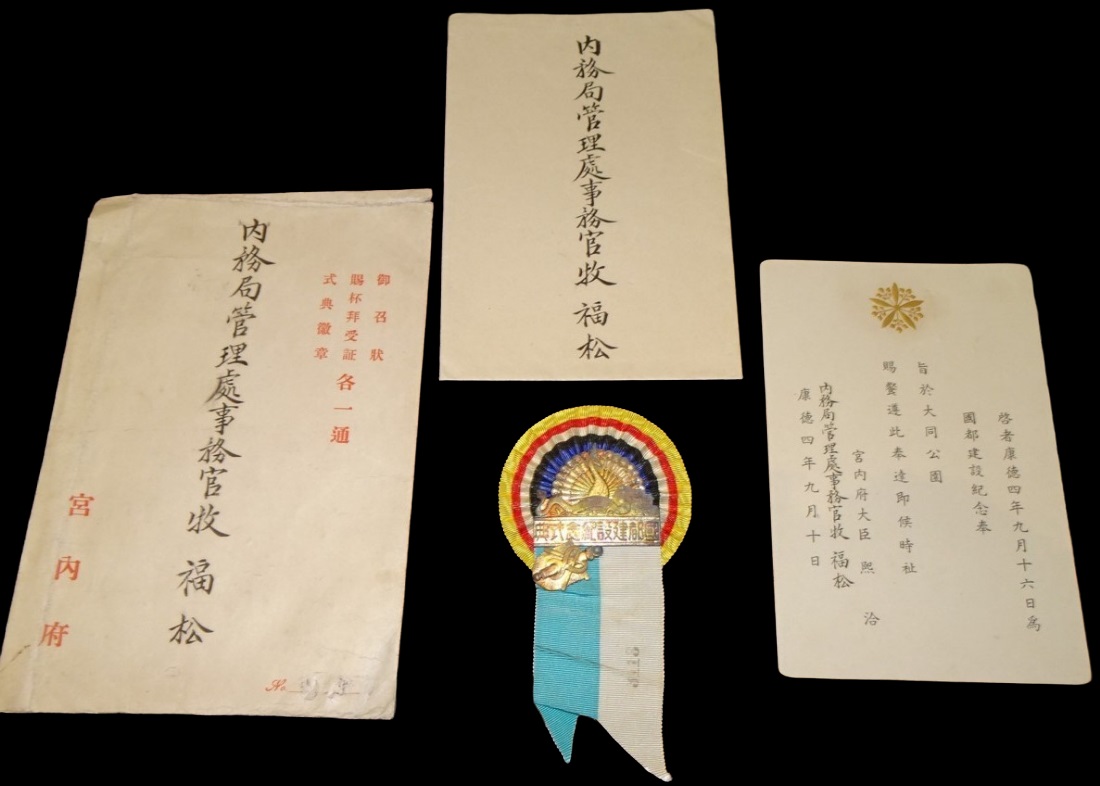 御召狀
賜杯拜受証 各一通
式典徽章
内務局管理處事務官牧 福松
宮內府
No.
内務局管理處事務官牧 福松
國都建設紀念式典
啓者康德四年九月十六日爲
國都建設紀念奉
旨於大同公園
賜饗遵此奉達即候時祉
宮内府大臣 熙 洽
内務局管理處事務官牧 福松
康德四年九月十日